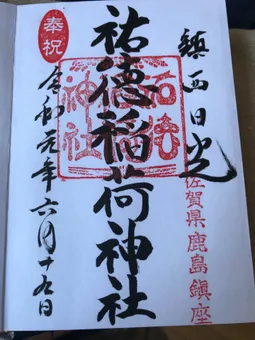 鎮西日光
佐賀県鹿島鎮座
祐徳稲荷神社
祐徳神社
奉祝
令和元年六月十九日